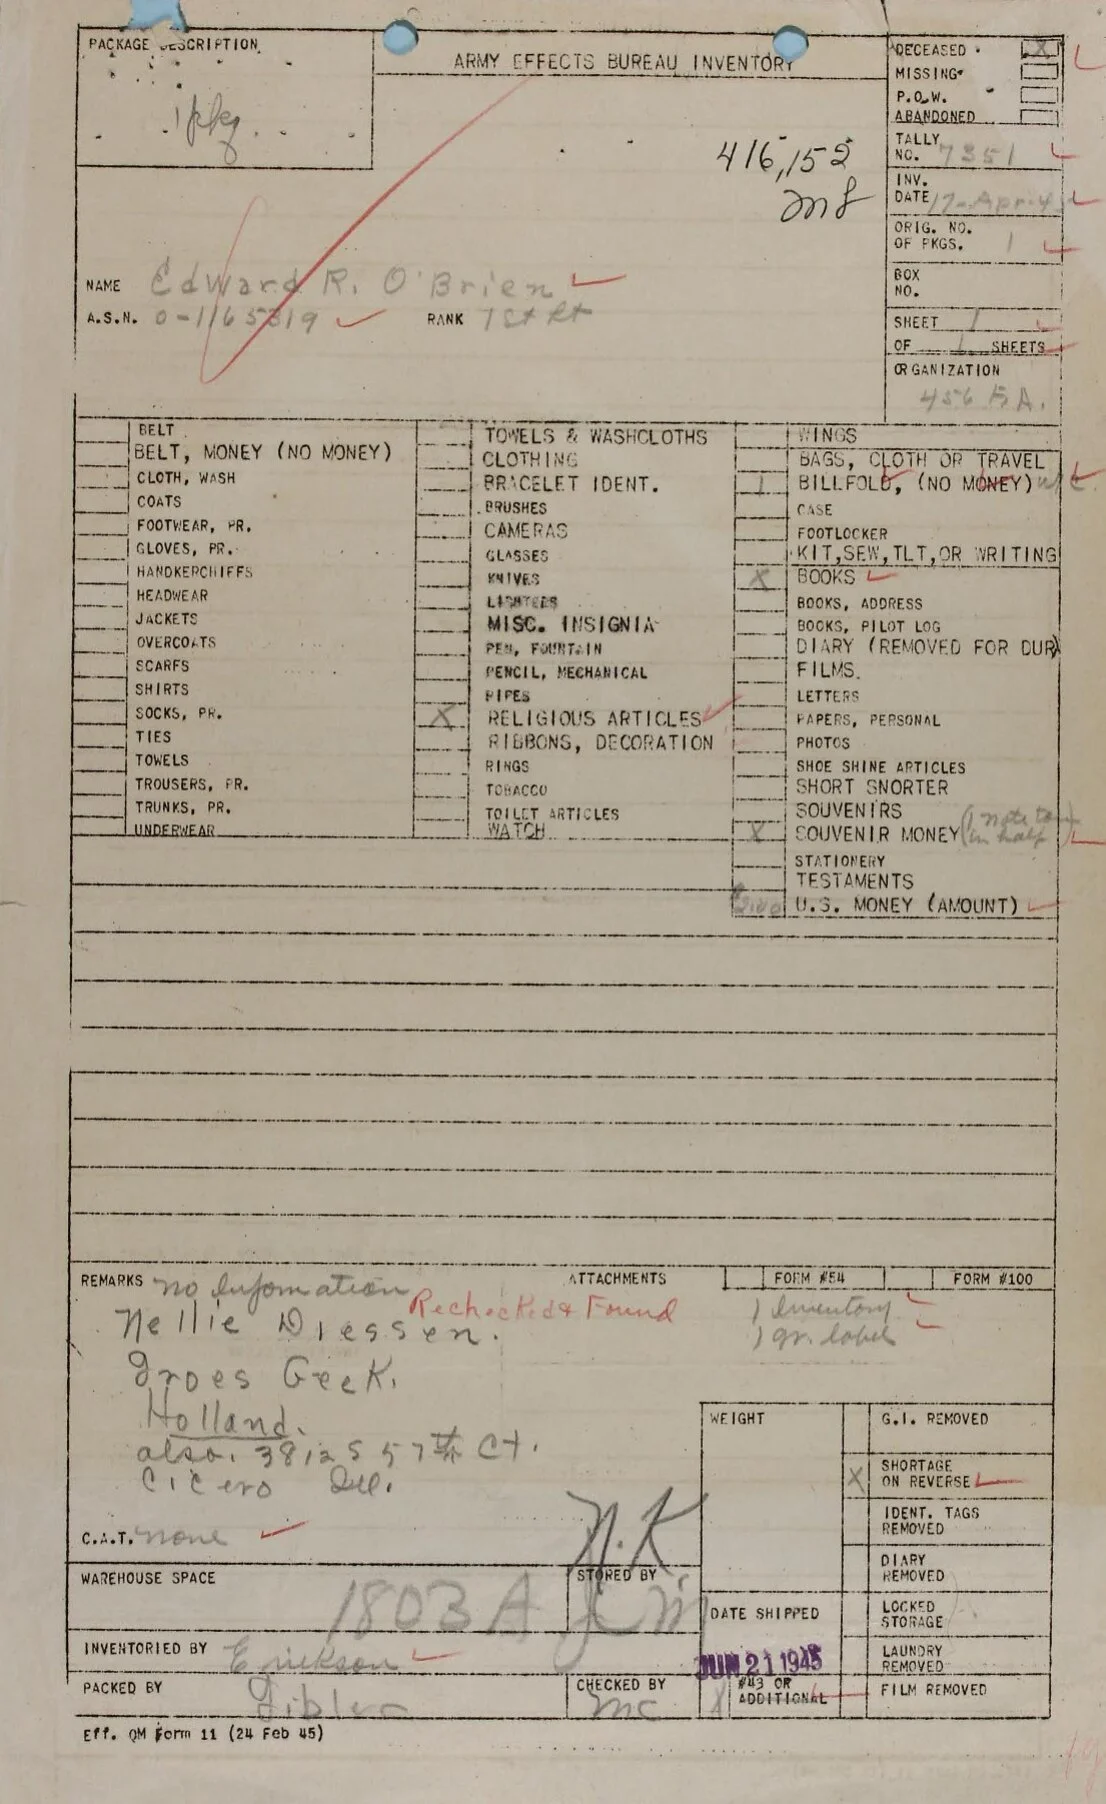 PACKAGE DESCRIPTION
1 pkg.
ARMY EFFECTS BUREAU INVENTORY
416,152
DECEASED X
MISSING
P.O.W.
ABANDONED
TALLY
NO. 7351
INV.
DATE 17-Apr-45
ORIG. NO.
OF PKGS. 1
BOX
NO.
SHEET 1
OF 1 SHEETS
ORGANIZATION
456 F.A.
NAME Edward R. O'Brien
A.S.N. O-1165319 RANK 1st Lt
BELT
BELT, MONEY (NO MONEY)
CLOTH, WASH
COATS
FOOTWEAR, PR.
GLOVES, PR.
HANDKERCHIEFS
HEADWEAR
JACKETS
OVERCOATS
SCARFS
SHIRTS
SOCKS, PR.
TIES
TOWELS
TROUSERS, PR.
TRUNKS, PR.
UNDERWEAR
TOWELS & WASHCLOTHS
CLOTHING
BRACELET IDENT.
BRUSHES
CAMERAS
GLASSES
KNIVES
LIGHTERS
MISC. INSIGNIA
PEN, FOUNTAIN
PENCIL, MECHANICAL
PIPES
X RELIGIOUS ARTICLES
RIBBONS, DECORATION
RINGS
TOBACCO
TOILET ARTICLES
WATCH
WINGS
BAGS, CLOTH OR TRAVEL
1 BILLFOLD, (NO MONEY)
CASE
FOOTLOCKER
KIT,SEW,TLT,OR WRITING
X BOOKS
BOOKS, ADDRESS
BOOKS, PILOT LOG
DIARY (REMOVED FOR DUR)
FILMS.
LETTERS
PAPERS, PERSONAL
PHOTOS
SHOE SHINE ARTICLES
SHORT SNORTER
SOUVENIRS
X SOUVENIR MONEY (1 note torn
in half)
STATIONERY
TESTAMENTS
U.S. MONEY (AMOUNT)
REMARKS no Information
Rechecked & Found
Nellie Driessen.
Groes Geek.
Holland.
also. 3812 S 57th Ct.
Cicero Ill.
ATTACHMENTS FORM #54 FORM #100
1 Inventory
1 gr. label
C.A.T. none
N.K
WAREHOUSE SPACE
1803 A
STORED BY
INVENTORIED BY Erickson
PACKED BY
CHECKED BY
mc
WEIGHT
DATE SHIPPED
JUN 21 1945
X #43 OR
ADDITIONAL
G.I. REMOVED
X SHORTAGE
ON REVERSE
IDENT. TAGS
REMOVED
DIARY
REMOVED
LOCKED
STORAGE
LAUNDRY
REMOVED
FILM REMOVED
Eff. QM Form 11 (24 Feb 45)